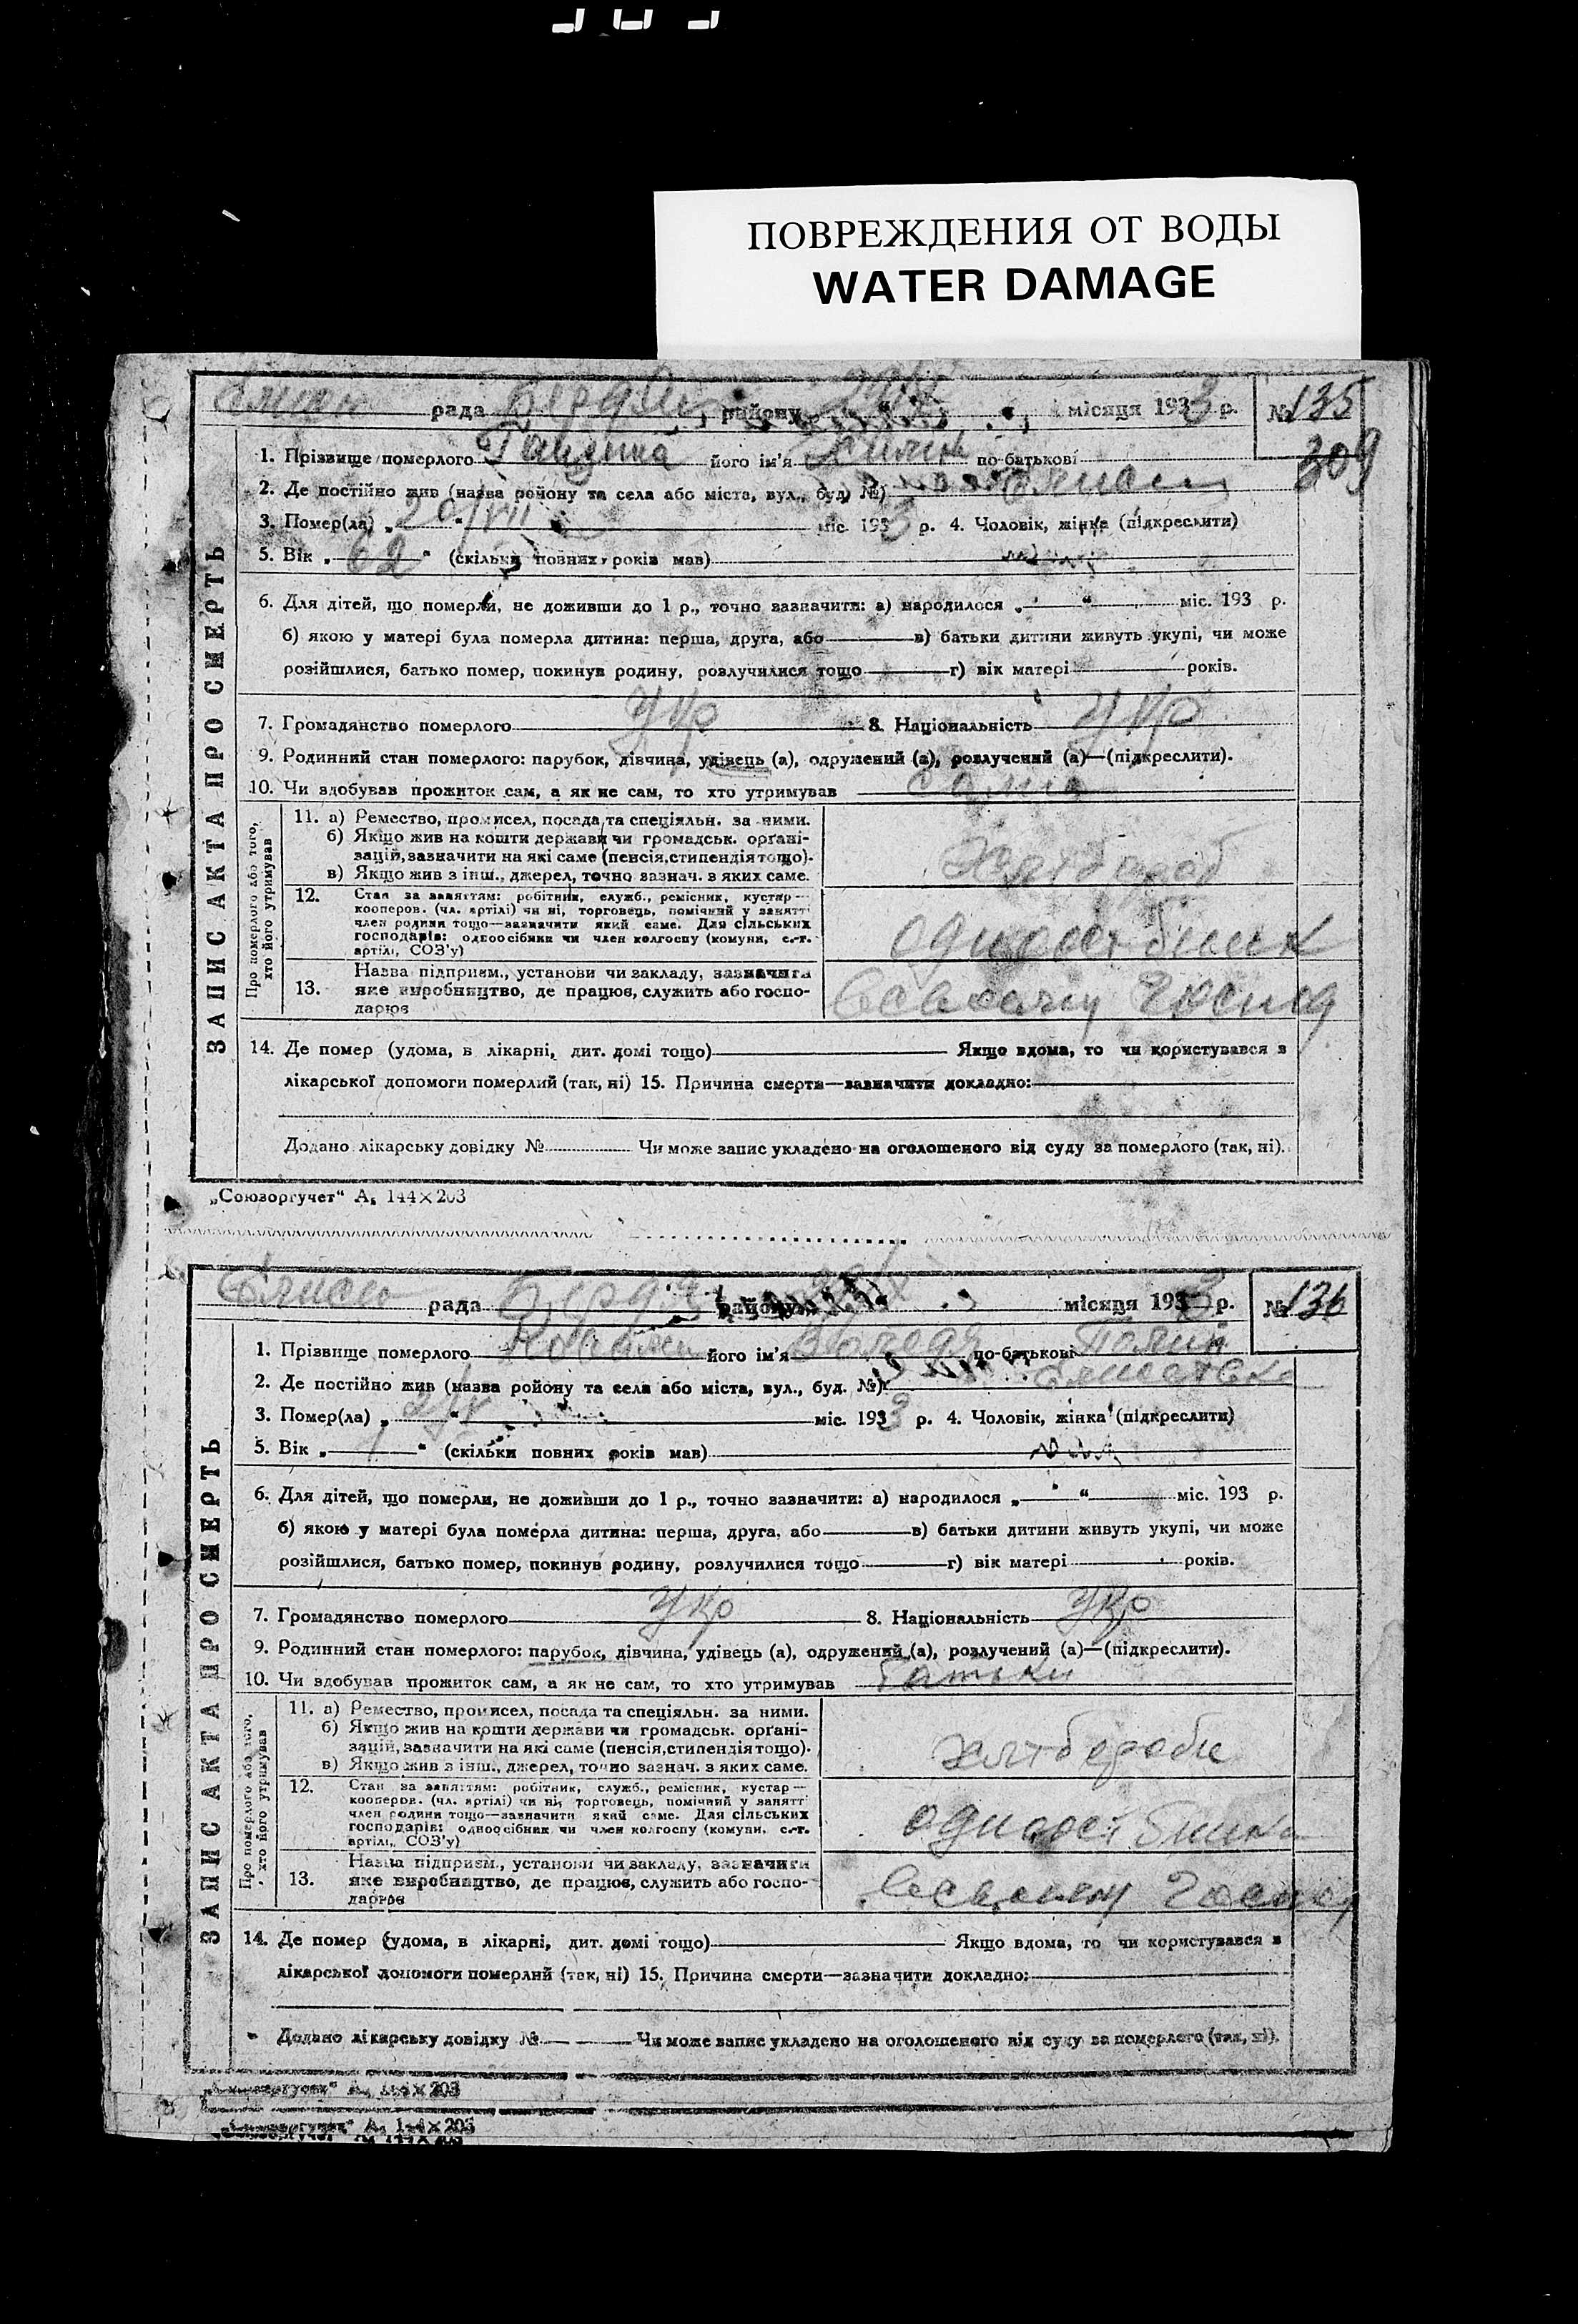 ПОВРЕЖДЕНИЯ ОТ ВОДЫ
WATER DAMAGE
рада району місяця 1933 р. № 135
309
ЗАПИС АКТА ПРО СМЕРТЬ
1. Прізвище померлого його ім'я по-батькові
2. Де постійно жив (назва району та села або міста, вул., буд. №)
3. Помер(ла) „20/VII“ міс. 1933 р. 4. Чоловік, жінка (підкреслити)
5. Вік „62“ (скільки повних років мав)
6. Для дітей, що померли, не доживши до 1 р., точно зазначити: а) народилося „ “ міс. 193 р.
б) якою у матері була померла дитина: перша, друга, або в) батьки дитини живуть укупі, чи може
розійшлися, батько помер, покинув родину, розлучилися тощо г) вік матері років.
7. Громадянство померлого Укр 8. Національність Укр
9. Родинний стан померлого: парубок, дівчина, удівець (а), одружений (а), розлучений (а)—(підкреслити).
10. Чи здобував прожиток сам, а як не сам, то хто утримував
Про померлого або того, хто його утримував
11. а) Ремество, промисел, посада та спеціяльн. за ними.
б) Якщо жив на кошти держави чи громадськ. органі-
зацій, зазначити на які саме (пенсія, стипендія тощо).
в) Якщо жив з інш., джерел, точно зазнач. з яких саме.
хлібороб
12. Стан за заняттям: робітник, служб., ремісник, кустар—
кооперов. (чл. артілі) чи ні, торговець, помічний у занятті
член родини тощо—зазначити який саме. Для сільських
господарів: одноосібник чи член колгоспу (комуни, с.-г.
артілі, СОЗ'у)
одноосібник
13. Назва підприєм., установи чи закладу, зазначити
яке виробництво, де працює, служить або госпо-
дарює
14. Де помер (удома, в лікарні, дит. домі тощо) Якщо вдома, то чи користувався з
лікарської допомоги померлий (так, ні) 15. Причина смерти—зазначити докладно:
Додано лікарську довідку № Чи може запис укладено на оголошеного від суду за померлого (так, ні).
„Союзоргучет“ А₅ 144×203
рада району місяця 1933 р. № 136
ЗАПИС АКТА ПРО СМЕРТЬ
1. Прізвище померлого його ім'я Володя по-батькові
2. Де постійно жив (назва району та села або міста, вул., буд. №)
3. Помер(ла) „ “ міс. 1933 р. 4. Чоловік, жінка (підкреслити)
5. Вік „1“ (скільки повних років мав)
6. Для дітей, що померли, не доживши до 1 р., точно зазначити: а) народилося „ “ міс. 193 р.
б) якою у матері була померла дитина: перша, друга, або в) батьки дитини живуть укупі, чи може
розійшлися, батько помер, покинув родину, розлучилися тощо г) вік матері років.
7. Громадянство померлого Укр 8. Національність Укр
9. Родинний стан померлого: парубок, дівчина, удівець (а), одружений (а), розлучений (а)—(підкреслити).
10. Чи здобував прожиток сам, а як не сам, то хто утримував батьки
Про померлого або того, хто його утримував
11. а) Ремество, промисел, посада та спеціяльн. за ними.
б) Якщо жив на кошти держави чи громадськ. органі-
зацій, зазначити на які саме (пенсія, стипендія тощо).
в) Якщо жив з інш., джерел, точно зазнач. з яких саме.
хлібороби
12. Стан за заняттям: робітник, служб., ремісник, кустар—
кооперов. (чл. артілі) чи ні, торговець, помічний у занятті
член родини тощо—зазначити який саме. Для сільських
господарів: одноосібник чи член колгоспу (комуни, с.-г.
артілі, СОЗ'у)
13. Назва підприєм., установи чи закладу, зазначити
яке виробництво, де працює, служить або госпо-
дарює
14. Де помер (удома, в лікарні, дит. домі тощо) Якщо вдома, то чи користувався з
лікарської допомоги померлий (так, ні) 15. Причина смерти—зазначити докладно:
Додано лікарську довідку № Чи може запис укладено на оголошеного від суду за померлого (так, ні).
А₅ 144×203
А₅ 144×203